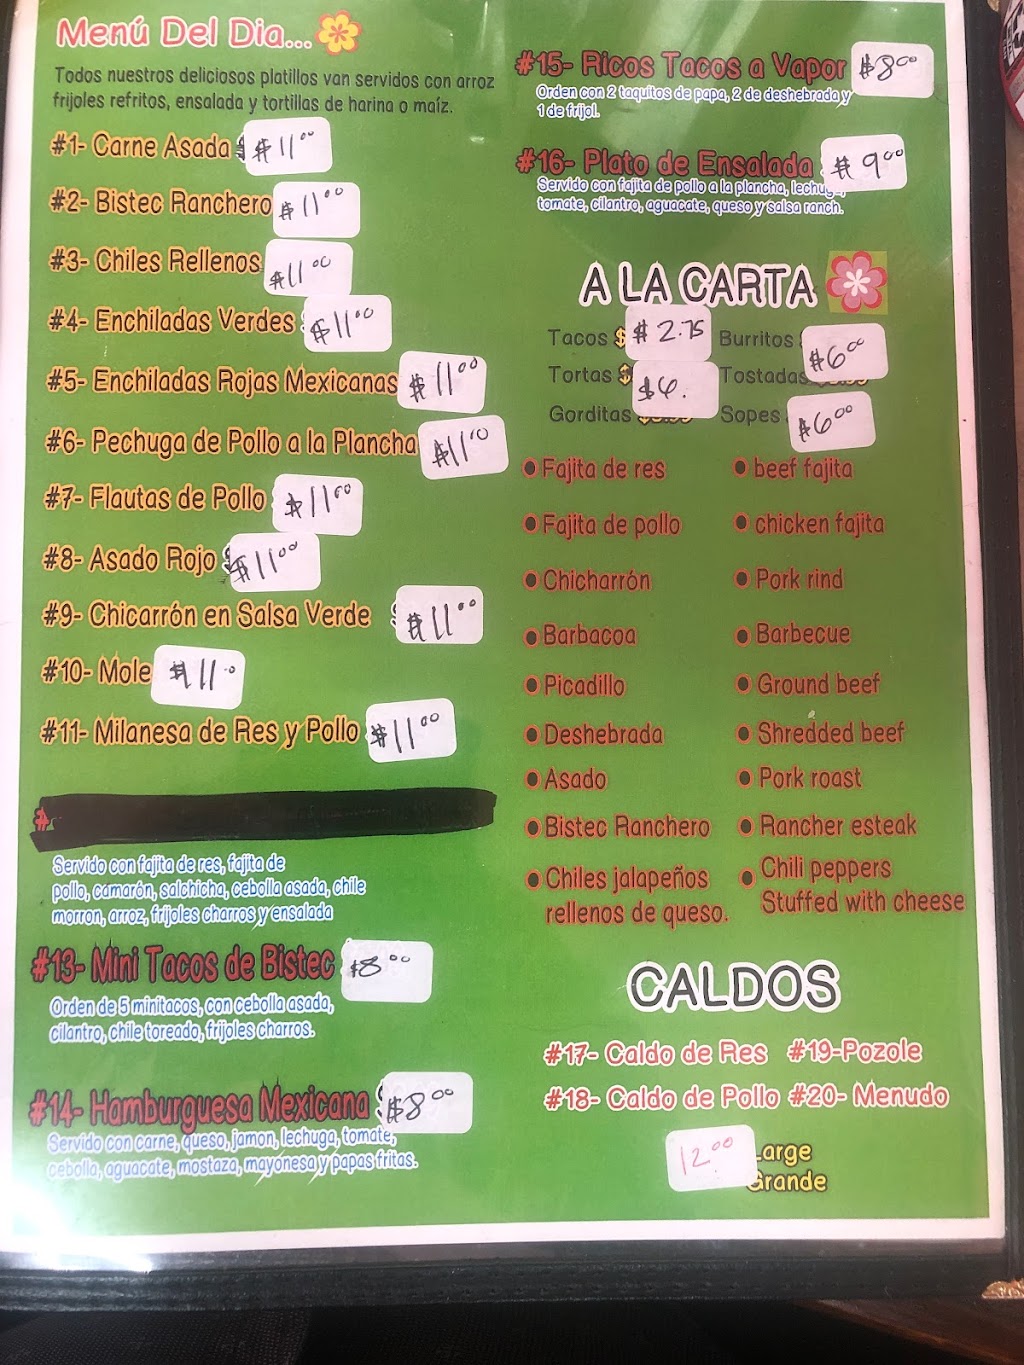 Menú Del Dia...
Todos nuestros deliciosos platillos van servidos con arroz
frijoles refritos, ensalada y tortillas de harina o maíz.
#1- Carne Asada $11.00
#2- Bistec Ranchero $11.00
#3- Chiles Rellenos $11.00
#4- Enchiladas Verdes $11.00
#5- Enchiladas Rojas Mexicanas $11.00
#6- Pechuga de Pollo a la Plancha $11.00
#7- Flautas de Pollo $11.00
#8- Asado Rojo $11.00
#9- Chicarrón en Salsa Verde $11.00
#10- Mole $11.0
#11- Milanesa de Res y Pollo $11.00
#
Servido con fajita de res, fajita de
pollo, camarón, salchicha, cebolla asada, chile
morron, arroz, frijoles charros y ensalada
#13- Mini Tacos de Bistec $8.00
Orden de 5 minitacos, con cebolla asada,
cilantro, chile toreado, frijoles charros.
#14- Hamburguesa Mexicana $8.00
Servido con carne, queso, jamon, lechuga, tomate,
cebolla, aguacate, mostaza, mayonesa y papas fritas.
#15- Ricos Tacos a Vapor $8.00
Orden con 2 taquitos de papa, 2 de deshebrada y
1 de frijol.
#16- Plato de Ensalada $9.00
Servido con fajita de pollo a la plancha, lechuga,
tomate, cilantro, aguacate, queso y salsa ranch.
A LA CARTA
Tacos $ $2.75 Burritos $6.00
Tortas $ $6. Tostadas
Gorditas Sopes $6.00
Fajita de res beef fajita
Fajita de pollo chicken fajita
Chicharrón Pork rind
Barbacoa Barbecue
Picadillo Ground beef
Deshebrada Shredded beef
Asado Pork roast
Bistec Ranchero Rancher esteak
Chiles jalapeños Chili peppers
rellenos de queso. Stuffed with cheese
CALDOS
#17- Caldo de Res #19-Pozole
#18- Caldo de Pollo #20- Menudo
12.00 Large
Grande